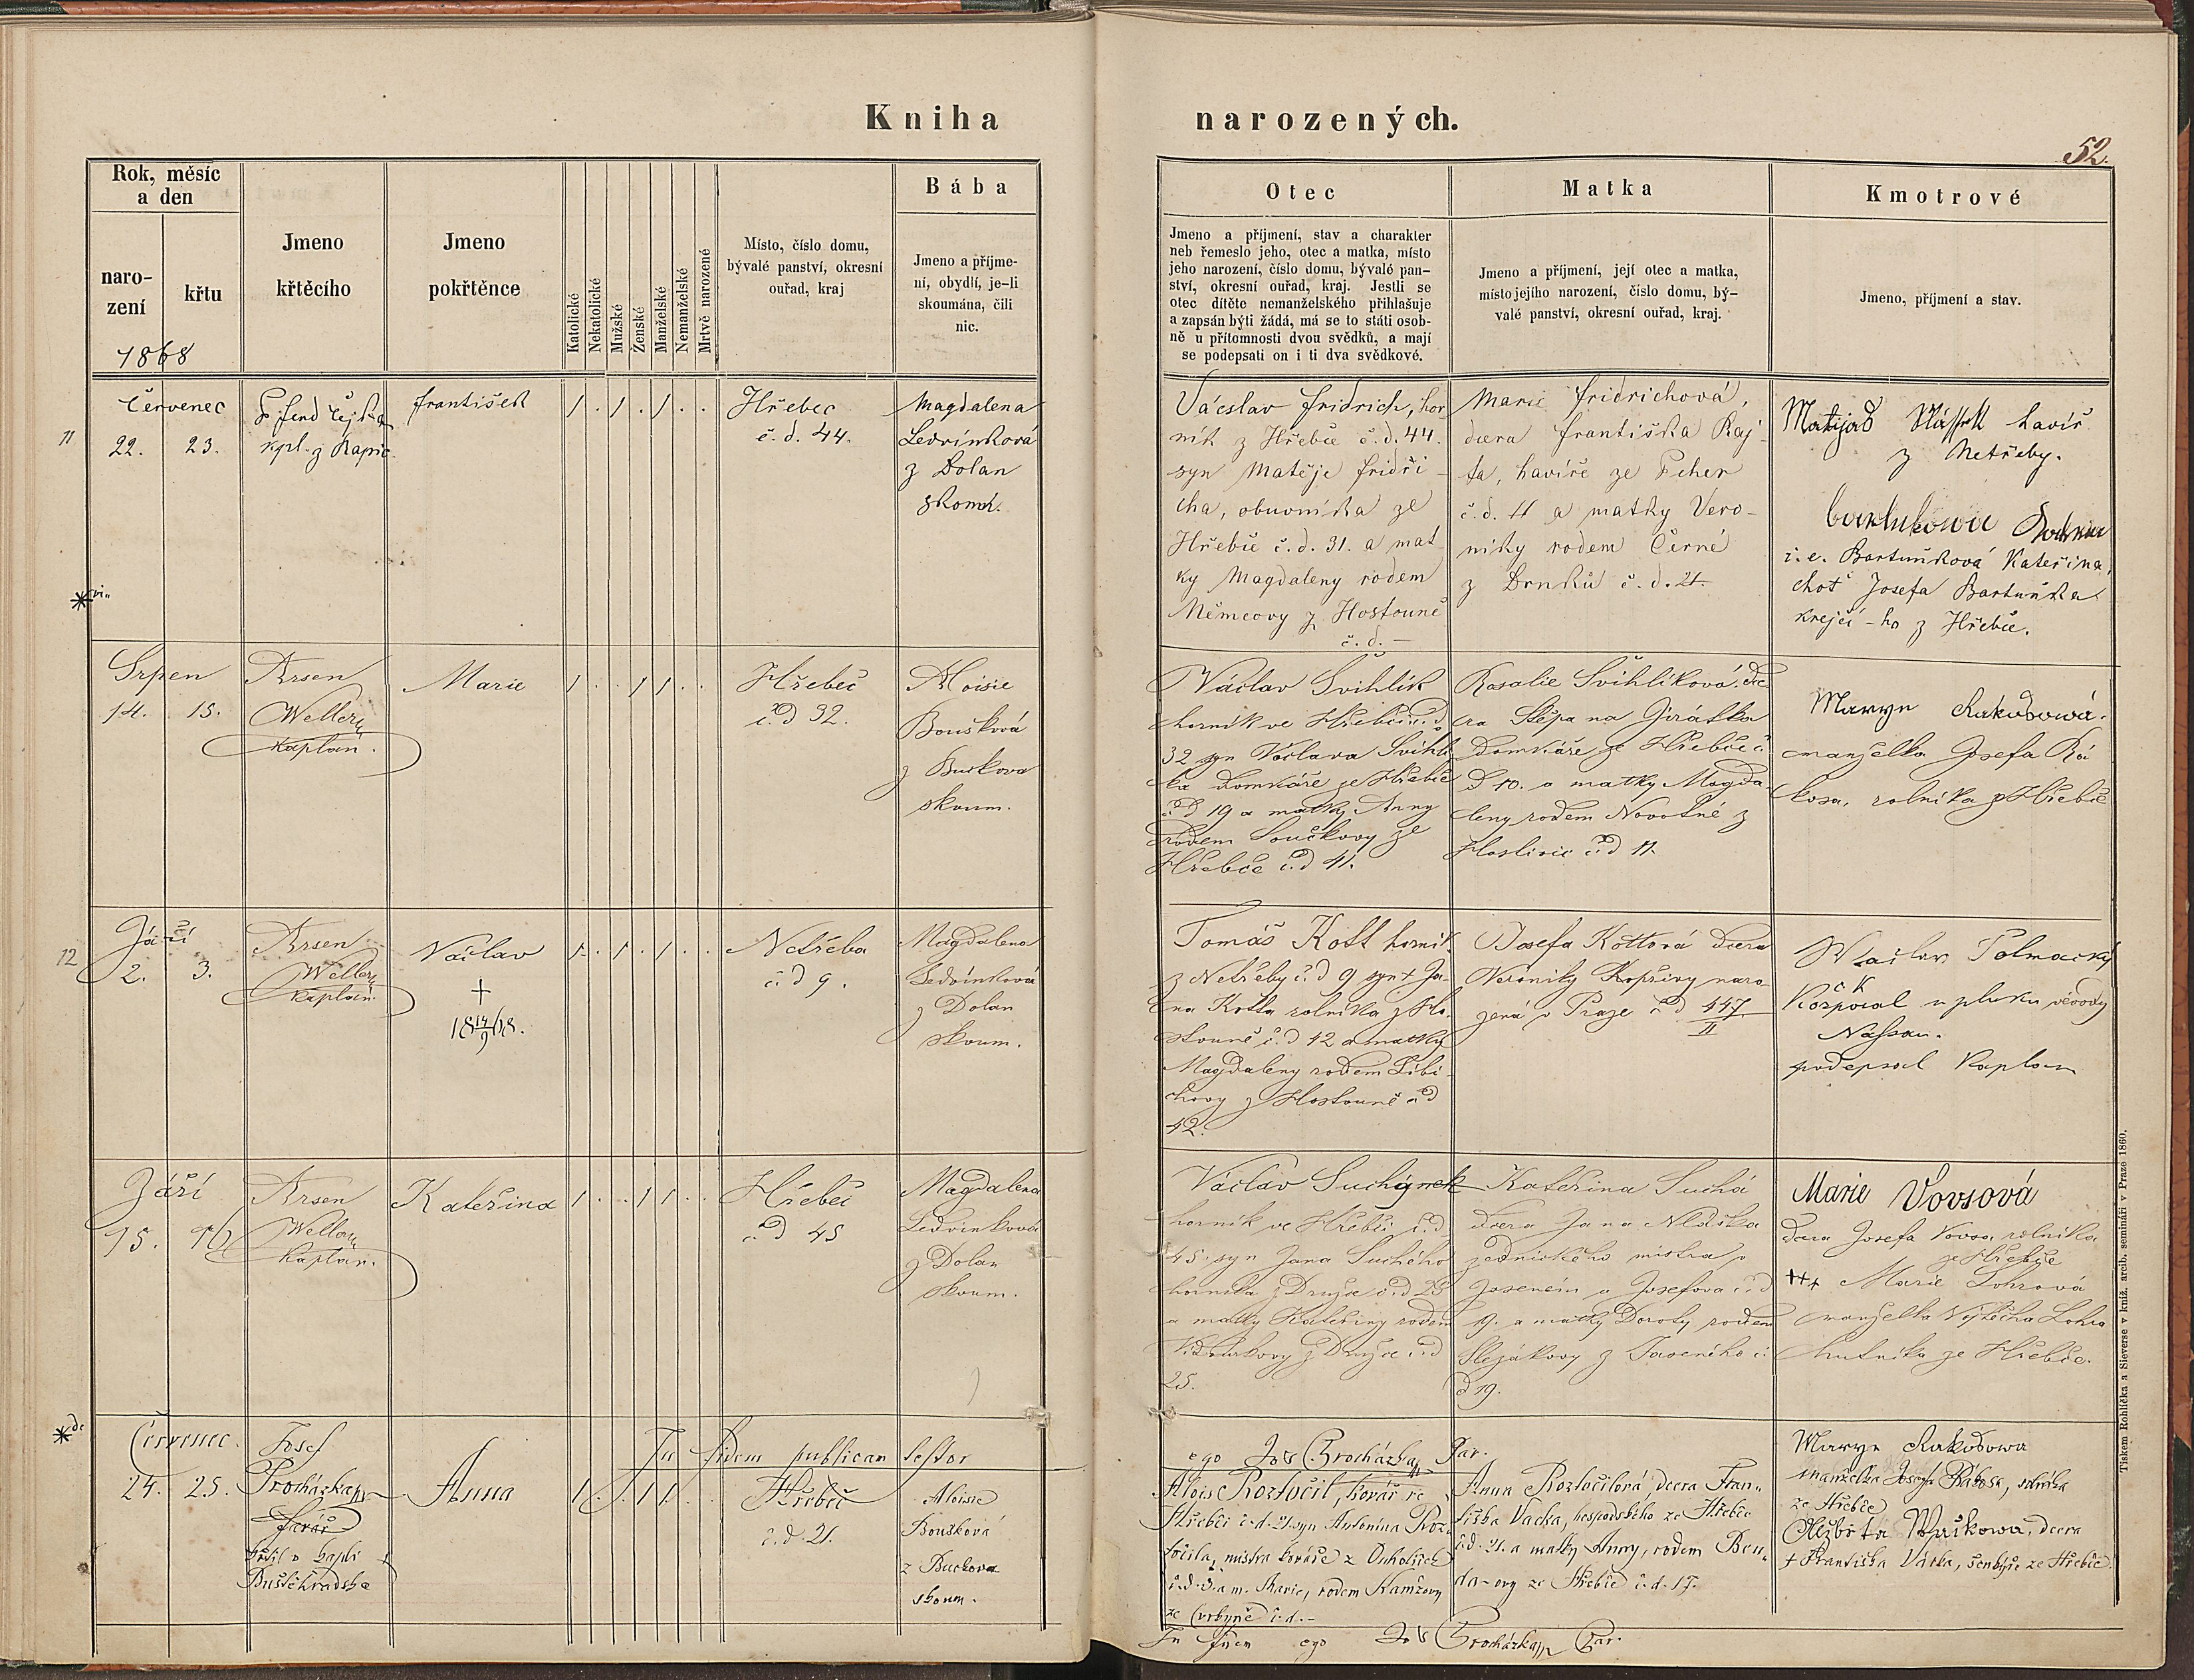 Kniha narozených.
52.
Rok, měsíc
a den
naro-
zení
křtu
1868
Jmeno
křtěcího
Jmeno
pokřtěnce
Katolické
Nekatolické
Mužské
Ženské
Manželské
Nemanželské
Mrtvě narozené
Místo, číslo domu,
bývalé panství, okresní
ouřad, kraj
Bába
Jmeno a příjme-
ní, obydlí, je-li
skoumána, čili
nic.
Otec
Jmeno a příjmení, stav a charakter
neb řemeslo jeho, otec a matka, místo
jeho narození, číslo domu, bývalé pan-
ství, okresní ouřad, kraj. Jestli se
otec dítěte nemanželského přihlašuje
a zapsán býti žádá, má se to státi osob-
ně u přítomnosti dvou svědků, a mají
se podepsati on i ti dva svědkové.
Matka
Jmeno a příjmení, její otec a matka,
místo jejího narození, číslo domu, bý-
valé panství, okresní ouřad, kraj.
Kmotrové
Jmeno, příjmení a stav.
11
Červenec
22. 23.
kpl. z
František
1 . 1 . 1 . .
Hřebec
č. d. 44.
Magdalena
Ledvinková
z Dolan
zkom.
Václav Fridrich, hor
ník z Hřebče č.d. 44.
syn Matěje Fridři-
cha, obuvníka ze
Hřebče č.d. 31. a mat
ky Magdaleny rodem
Němcovy z Hostouně
č.d. –
Marie Fridrichová,
dcera Františka Raj-
ta, havíře ze
č.d. 11 a matky Vero-
niky rodem Černé
z Brnků č.d. 21.
Matijas havíř
z Netřeby.
i.e. Bartuňková Kateřina,
choť Josefa Bartuňka
krejčí-ho z Hřebče.
Srpen
14. 15.
Arsen
Weller
kaplan.
Marie
1 . . 1 1 . .
Hřebeč
č.d 32.
Aloisie
Boušková
z Buckova
skoum.
Václav Švihlík
horník ve Hřebči č.d
32 syn Václava Švihlí
ka domkáře ze Hřebče
č.d 19 a matky Anny
rodem Součkovy ze
Hřebče č.d 41.
Rosalie Švihlíková, dce
ra Štěpána Jiráska
domkáře ze Hřebče č
d 10. a matky Magda
leny rodem Novotné z
Hostivic č.d 11.
Maryе Rakosowá.
manželka Josefa Rá
kosa, rolníka z Hřebče
12
Září
2. 3.
Arsen
Weller
kaplan.
Václav
+
18 14/9 68.
1 . 1 . 1 . .
Netřeba
č.d 9.
Magdalena
Ledvinková
z Dolan
skoum.
Tomáš Kott horník
z Netřeby č.d 9 syn + Ja-
na Kotta rolníka z Ho-
stouně č.d 12 a matky
Magdaleny rodem Libi-
chovy z Hostouně č.d
42.
Josefa Kottová dcera
Veroniky Kopřivy naro-
zená v Praze č.d 447
II
Waclav Polmacký
u pluku vévody
Nassau.
podepsal Kaplan
Září
15. 16
Arsen
Weller
kaplan.
Kateřina
1 . . 1 1 . .
Hřebeč
č.d 45
Magdalena
Ledvinková
z Dolan
skoum.
Václav Suchýnek
horník ve Hřebči č.d
45. syn Jana Suchého
horníka z Družce č.d 25
a matky Kateřiny rodem
z Družce č.d
25.
Kateřina Suchá
dcera Jana
zednického mistra v
Josefova č.d
19. a matky Doroty rodem
Slezákovy z č.
d 19.
Marie Vovsová
dcera Josefa Vovsa rolníka
ze Hřebče
+++ Marie Lohrová
manželka Vojtěcha Lohra
hutníka ze Hřebče.
Červenec.
24. 25.
Josef
Procházka
farář
křtil v kapli
Buštěhradské
Anna
1 . . 1 1 . .
In fidem publicam testor
ego Jos Procházka Par.
Hřebeč
č.d. 21.
Aloisie
Boušková
z Buckova
skoum.
Alois Roztočil, kovář ve
Hřebči č.d. 21. syn Antonína Roz-
točila, mistra kováře z
č.d. 3. a m. Marie, rodem Kamžovy
ze č.d.–
In fidem ego Jos Procházka Par.
Anna Roztočilová, dcera Fran-
tiška Vacka, hospodského ze Hřebče
č.d. 21. a matky Anny, rodem Ben-
da-ovy ze Hřebče č.d. 17.
Marye Rakosowa
manželka Josefa Rákosa, rolníka
ze Hřebče
Alžběta Wackowa, dcera
+ Františka Vacka, šenkýře ze Hřebče.
Tiskem Rohlíčka a Sieverse v kníž. arcib. semináři v Praze 1860.